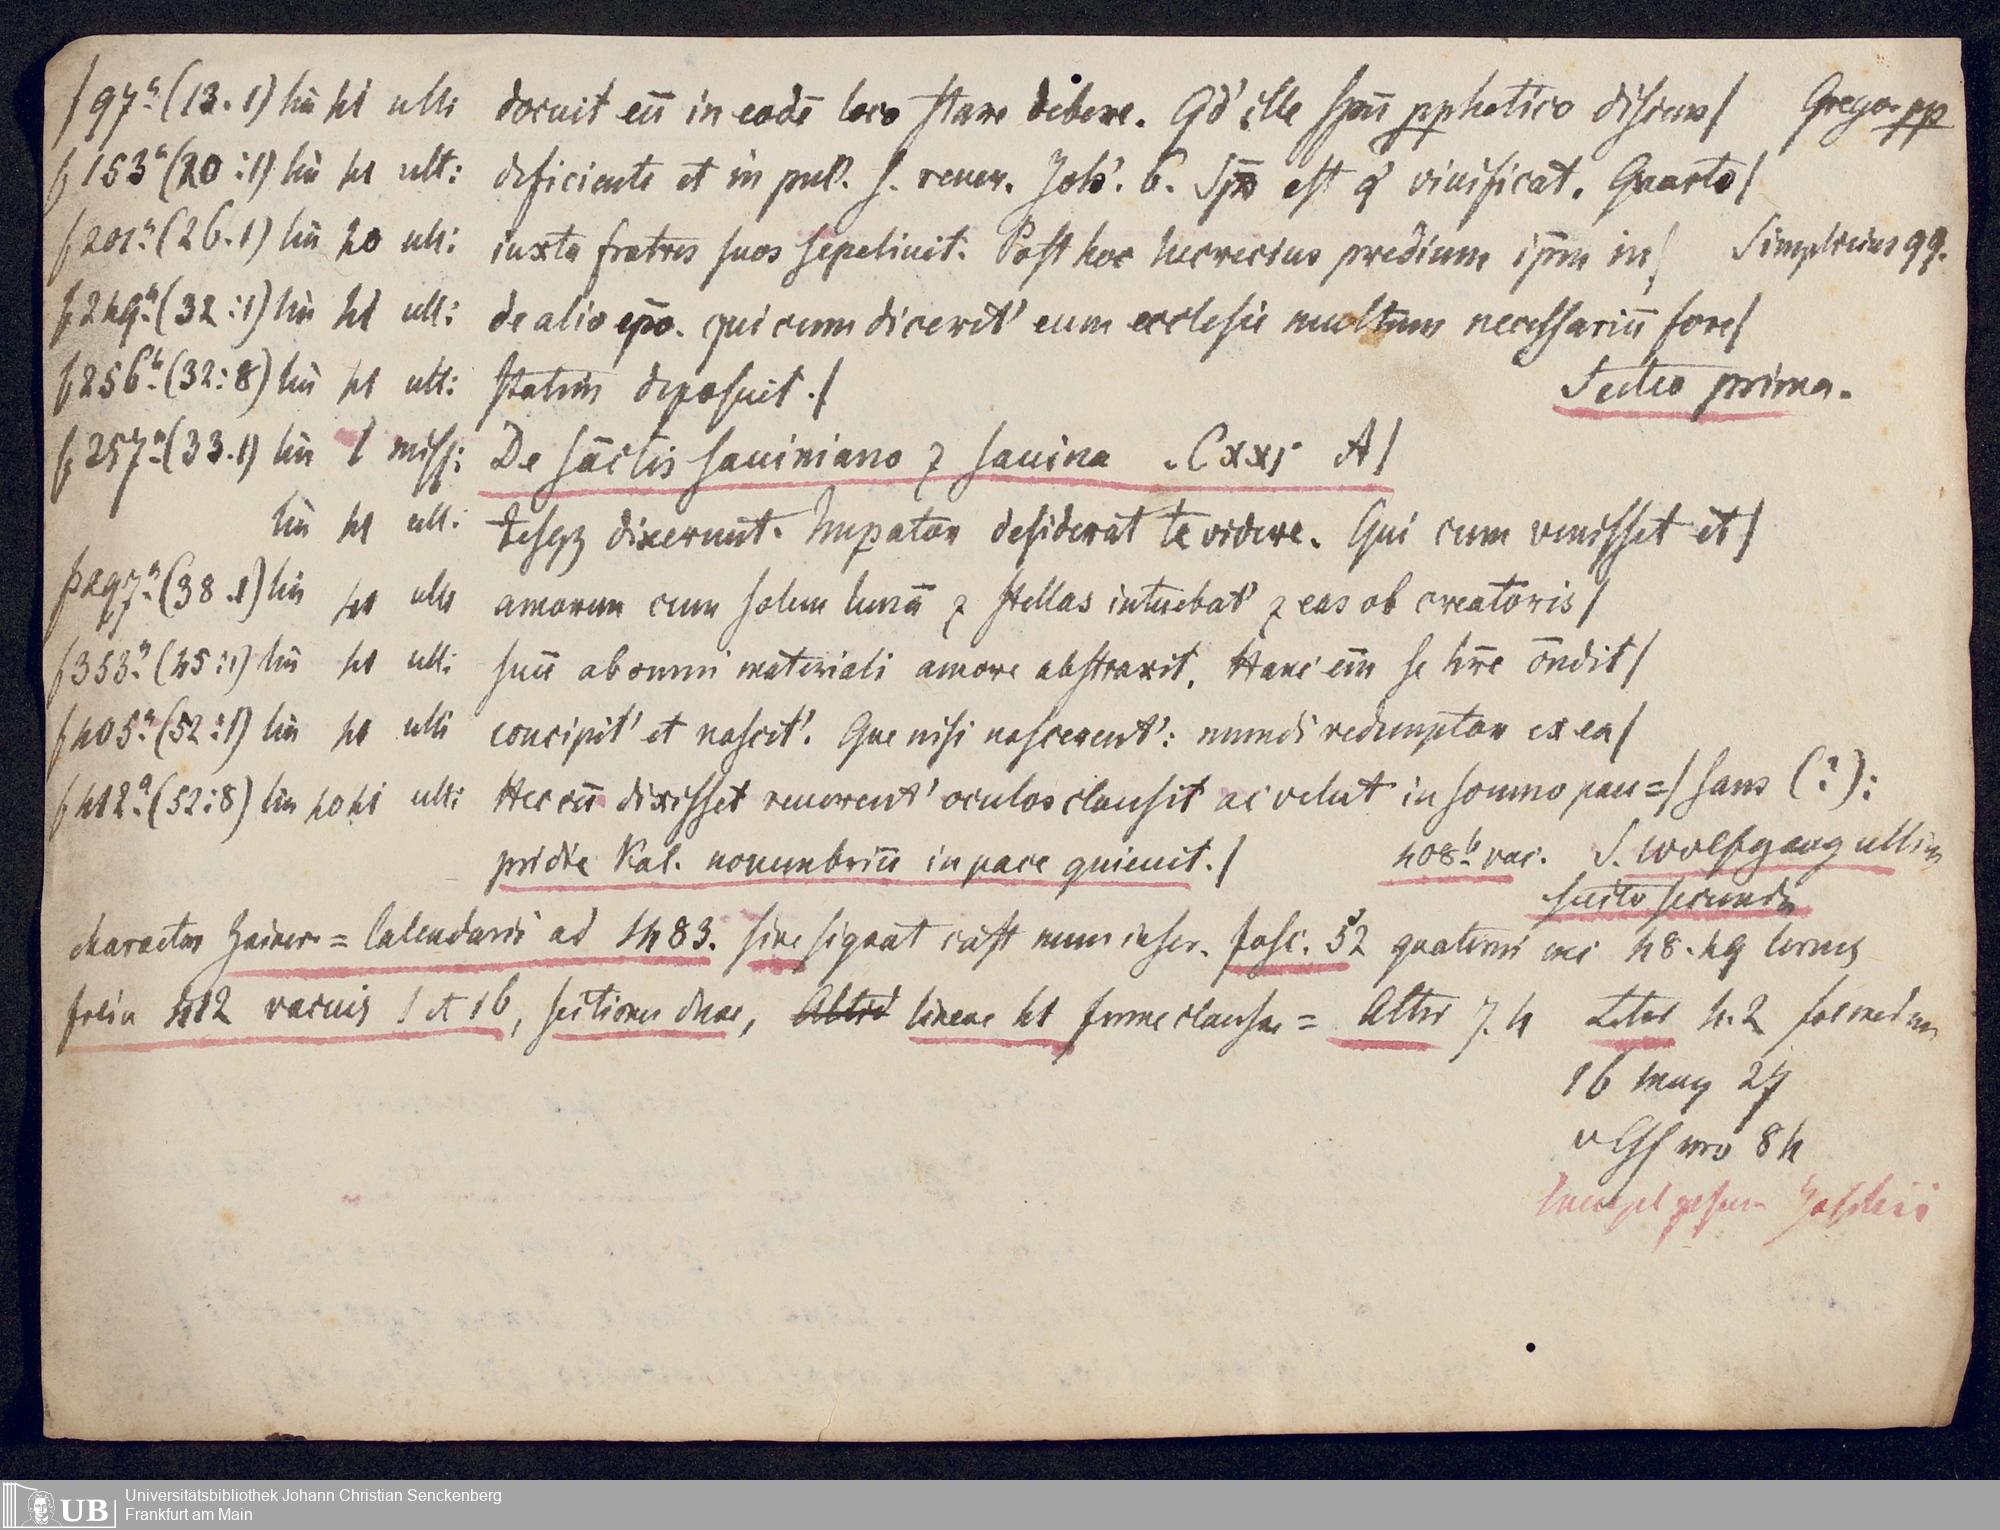 f 97ᵃ (13.1) lin 41 ulti docuit eū in eodē loco stare debere. Qd' ille spū pphetico discens/ Gregor pp
f 153ᵃ (20:1) lin 41 ult: deficiente et in pul'. f. rener. Joh'. 6. Sps est q' viuificat. Quarto/
f 201ᵃ (26.1) lin 40 ult: iuxta fratres suos sepeliuit. Post hoc lucrecius predium ipm in/ Simplicius qq.
f 249ᵃ (32:1) lin 41 ult: de alio epo. qui cum dicerēt' eum ecclesie multum necessariū fore/
f 256ᵇ (32:8) lin 41 ult: statim deposuit./ Sectio prima.
f 257ᵃ (33.1) lin 1 miss: De sāctis sauiniano ⁊ sauina .Cxxj A/
lin 41 ult: dixerunt. Impator desiderat te videre. Qui cum venisset et/
f 297ᵃ (38.1) lin 41 ulti amorem cum solem lunā ⁊ stellas intuebat' ⁊ eas ob creatoris/
f 353ᵃ (45:1) lin 41 ult: suū ab omni materiali amore abstraxit. Hanc eīn se hr̄e ōndit/
f 405ᵃ (52:1) lin 41 ulti concipit' et nascit'. Que nisi nascerent': mundi redemptor ex ea/
f 412ᵃ (52:8) lin 40 41 ult: Hec cū dixisset reuerent' oculos clausit ac velut in somno pau=/sans (?):
pridie Kal. nouembriū in pace quieuit./ 408ᵇ vac. S. wolfgang ultim
sectio secunda
character Zainer = Calendarii ad 1483. sine signat cust num inscr. fasc. 52 quaterni 48.49 ternis
folia 412 vacuis 1 et 16, sectiones duae, lineae 41 forme clausae = Alter 7.4 Leter 4.2
16 may 27
nro 84